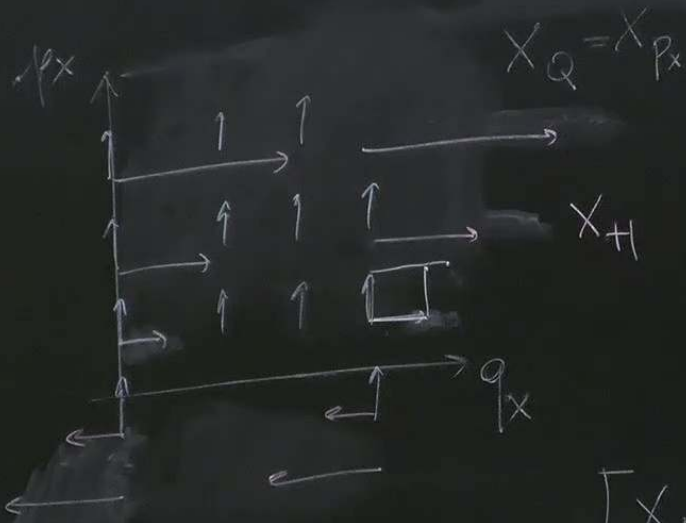 px
X_Q = X_{px}
X_H
q_x
[X